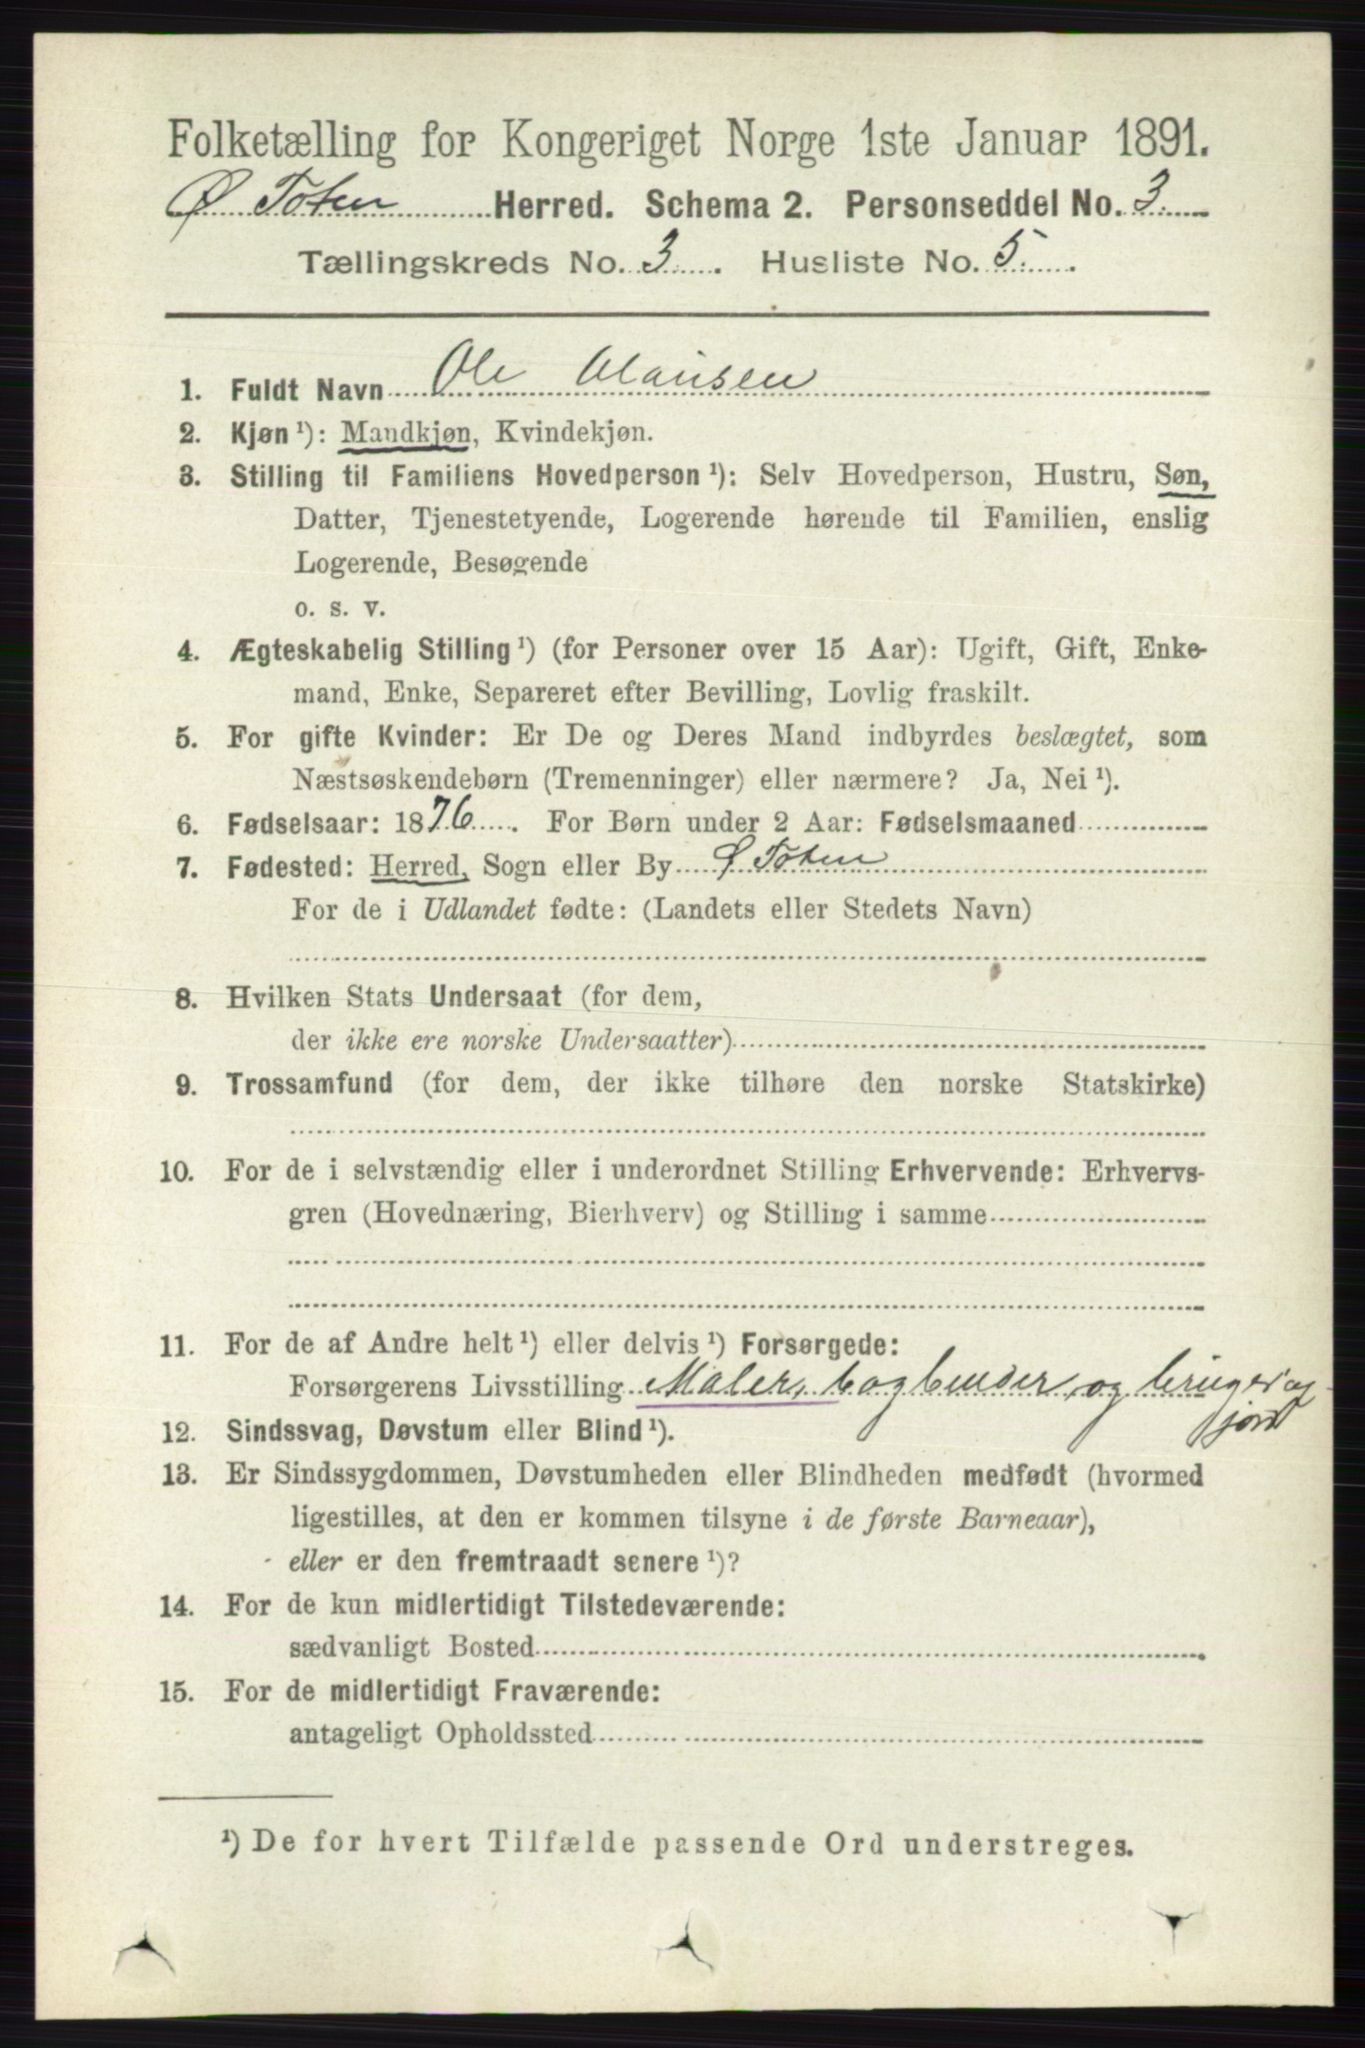 Folketælling for Kongeriget Norge 1ste Januar 1891.
Ø Toten Herred. Schema 2. Personseddel No. 3
Tællingskreds No. 3. Husliste No. 5.
1. Fuldt Navn Ole Clausen
2. Kjøn ¹): Mandkjøn, Kvindekjøn.
3. Stilling til Familiens Hovedperson ¹): Selv Hovedperson, Hustru, Søn,
Datter, Tjenestetyende, Logerende hørende til Familien, enslig
Logerende, Besøgende
o. s. v.
4. Ægteskabelig Stilling ¹) (for Personer over 15 Aar): Ugift, Gift, Enke-
mand, Enke, Separeret efter Bevilling, Lovlig fraskilt.
5. For gifte Kvinder: Er De og Deres Mand indbyrdes beslægtet, som
Næstsøskendebørn (Tremenninger) eller nærmere? Ja, Nei ¹).
6. Fødselsaar: 1876. For Børn under 2 Aar: Fødselsmaaned
7. Fødested: Herred, Sogn eller By Ø Toten
For de i Udlandet fødte: (Landets eller Stedets Navn)
8. Hvilken Stats Undersaat (for dem,
der ikke ere norske Undersaatter)
9. Trossamfund (for dem, der ikke tilhøre den norske Statskirke)
10. For de i selvstændig eller i underordnet Stilling Erhvervende: Erhvervs-
gren (Hovednæring, Bierhverv) og Stilling i samme
11. For de af Andre helt ¹) eller delvis ¹) Forsørgede:
Forsørgerens Livsstilling Maler, bogbinder og bruger og
jord
12. Sindssvag, Døvstum eller Blind ¹).
13. Er Sindssygdommen, Døvstumheden eller Blindheden medfødt (hvormed
ligestilles, at den er kommen tilsyne i de første Barneaar),
eller er den fremtraadt senere ¹)?
14. For de kun midlertidigt Tilstedeværende:
sædvanligt Bosted
15. For de midlertidigt Fraværende:
antageligt Opholdssted
¹) De for hvert Tilfælde passende Ord understreges.